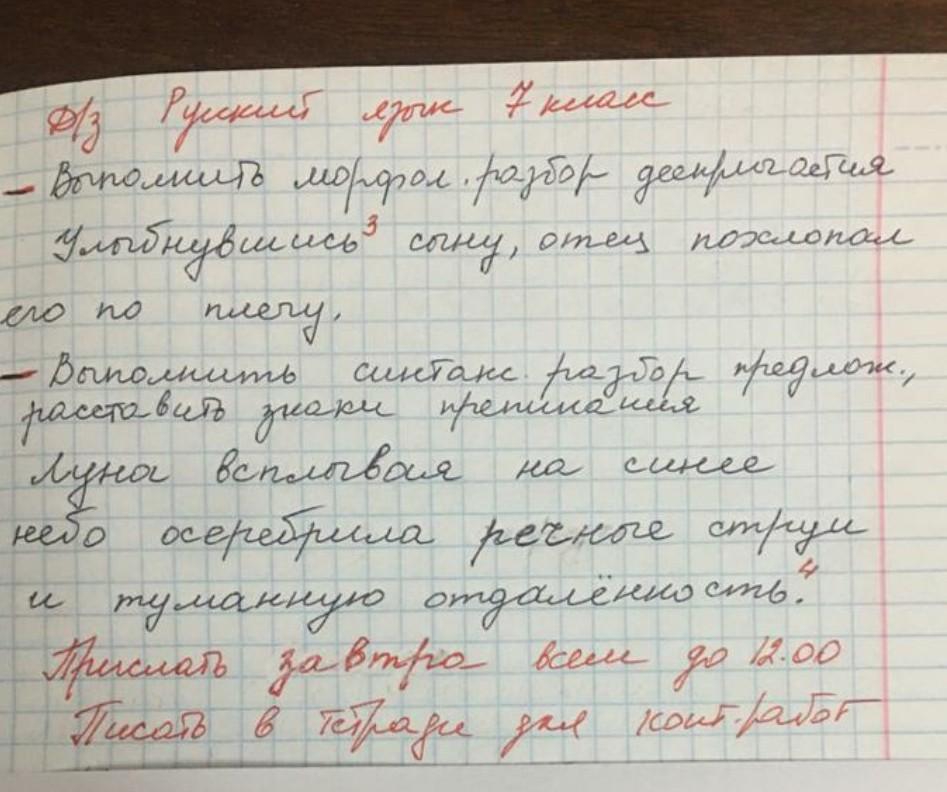 Д/з Русский язык 7 класс
- Выполнить морфол. разбор деепричастия
Улыбнувшись³ сыну, отец похлопал
его по плечу.
- Выполнить синтакс. разбор предлож.,
расставить знаки препинания
Луна всплывая на синее
небо осеребрила речные струи
и туманную отдалённость.⁴
Прислать завтра всем до 12.00
Писать в тетради для конт. работ